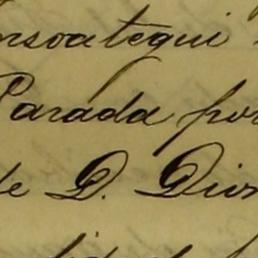 nsoategui
Parada por
de D. Dios